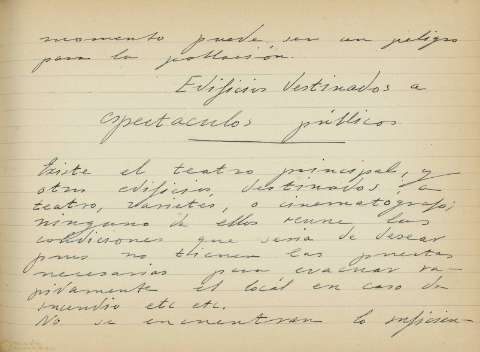 momento puede ser un peligro
para la población.
Edificios destinados a
espectaculos públicos
Existe el teatro principal, y
otros edificios destinados á
teatro, varietes, o cinematografo;
ninguno de ellos reune las
condiciones que seria de desear
pues no tienen las puertas
necesarias para evacuar ra-
pidamente el locál en caso de
incendio etc etc.
No se encuentran lo suficien-